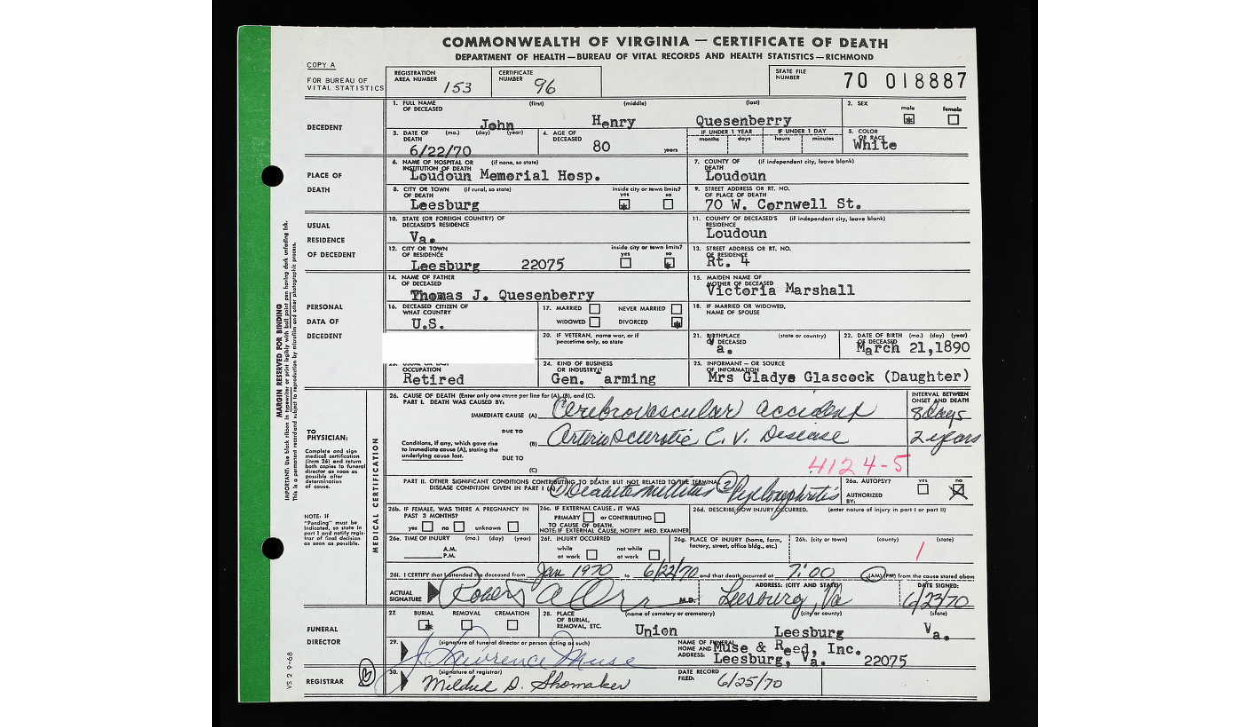 COMMONWEALTH OF VIRGINIA — CERTIFICATE OF DEATH
DEPARTMENT OF HEALTH—BUREAU OF VITAL RECORDS AND HEALTH STATISTICS—RICHMOND
COPY A
FOR BUREAU OF VITAL STATISTICS
REGISTRATION AREA NUMBER 153
CERTIFICATE NUMBER 96
STATE FILE NUMBER 70 018887
DECEDENT
1. FULL NAME OF DECEASED (first) (middle) (last)
John Henry Quesenberry
2. SEX male female
3. DATE OF DEATH (mo.) (day) (year)
6/22/70
4. AGE OF DECEASED
80 years
IF UNDER 1 YEAR months days
IF UNDER 1 DAY hours minutes
5. COLOR OR RACE
White
PLACE OF DEATH
6. NAME OF HOSPITAL OR INSTITUTION OF DEATH (if none, so state)
Loudoun Memorial Hosp.
7. COUNTY OF DEATH (if independent city, leave blank)
Loudoun
8. CITY OR TOWN OF DEATH (if rural, so state)
Leesburg
inside city or town limits? yes no
9. STREET ADDRESS OR RT. NO. OF PLACE OF DEATH
70 W. Cornwell St.
USUAL RESIDENCE OF DECEDENT
10. STATE (OR FOREIGN COUNTRY) OF DECEASED'S RESIDENCE
Va.
11. COUNTY OF DECEASED'S RESIDENCE (if independent city, leave blank)
Loudoun
12. CITY OR TOWN OF RESIDENCE
Leesburg 22075
inside city or town limits? yes no
13. STREET ADDRESS OR RT. NO. OF RESIDENCE
Rt. 4
PERSONAL DATA OF DECEDENT
14. NAME OF FATHER OF DECEASED
Thomas J. Quesenberry
15. MAIDEN NAME OF MOTHER OF DECEASED
Victoria Marshall
16. DECEASED CITIZEN OF WHAT COUNTRY
U.S.
17. MARRIED NEVER MARRIED
WIDOWED DIVORCED
18. IF MARRIED OR WIDOWED, NAME OF SPOUSE
20. IF VETERAN, name war, or if peacetime only, so state
21. BIRTHPLACE OF DECEASED (state or country)
a.
22. DATE OF BIRTH (mo.) (day) (year) OF DECEASED
March 21,1890
OCCUPATION
Retired
24. KIND OF BUSINESS OR INDUSTRY
Gen. arming
25. INFORMANT — OR SOURCE OF INFORMATION
Mrs Gladye Glascock (Daughter)
MARGIN RESERVED FOR BINDING
TO PHYSICIAN:
Complete and sign medical certification (item 26) and return both copies to funeral director as soon as possible after determination of cause.
NOTE: If "Pending" must be indicated, so state in part I and notify registrar of final decision as soon as possible.
MEDICAL CERTIFICATION
26. CAUSE OF DEATH (Enter only one cause per line for (A), (B), and (C).
PART I. DEATH WAS CAUSED BY:
INTERVAL BETWEEN ONSET AND DEATH
IMMEDIATE CAUSE (A) Cerebrovascular accident 8 days
DUE TO
Conditions, if any, which gave rise to immediate cause (A), stating the underlying cause last.
(B) Arteriosclerotic C. V. Disease 2 years
DUE TO
(C)
4124-5
PART II. OTHER SIGNIFICANT CONDITIONS CONTRIBUTING TO DEATH BUT NOT RELATED TO THE TERMINAL DISEASE CONDITION GIVEN IN PART I (A)
① Diabetes mellitus ② Pyelonephritis
26a. AUTOPSY? yes no
AUTHORIZED BY:
26b. IF FEMALE, WAS THERE A PREGNANCY IN PAST 3 MONTHS?
yes no unknown
26c. IF EXTERNAL CAUSE, IT WAS
PRIMARY or CONTRIBUTING
TO CAUSE OF DEATH.
NOTE: IF EXTERNAL CAUSE, NOTIFY MED. EXAMINER
26d. DESCRIBE HOW INJURY OCCURRED. (enter nature of injury in part I or part II)
26e. TIME OF INJURY (mo.) (day) (year)
A.M.
P.M.
26f. INJURY OCCURRED
while at work not while at work
26g. PLACE OF INJURY (home, farm, factory, street, office bldg., etc.)
26h. (city or town) (county) (state)
1
26i. I CERTIFY that I attended the deceased from Jan 1970 to 6/22/70 and that death occurred at 7:00 (AM) (PM) from the cause stated above
ACTUAL SIGNATURE M.D.
ADDRESS: (CITY AND STATE)
Leesburg, Va
DATE SIGNED:
6/23/70
FUNERAL DIRECTOR
27. BURIAL REMOVAL CREMATION
28. PLACE OF BURIAL, REMOVAL, ETC. (name of cemetery or crematory) (city or county) (state)
Union Leesburg Va.
29. (signature of funeral director or person acting as such)
Lawrence Muse
NAME OF FUNERAL HOME AND ADDRESS:
Muse & Reed, Inc.
Leesburg, Va. 22075
REGISTRAR
30. (signature of registrar)
Mildred D. Shomaker
DATE RECORD FILED:
6/25/70
VS 2 9-68